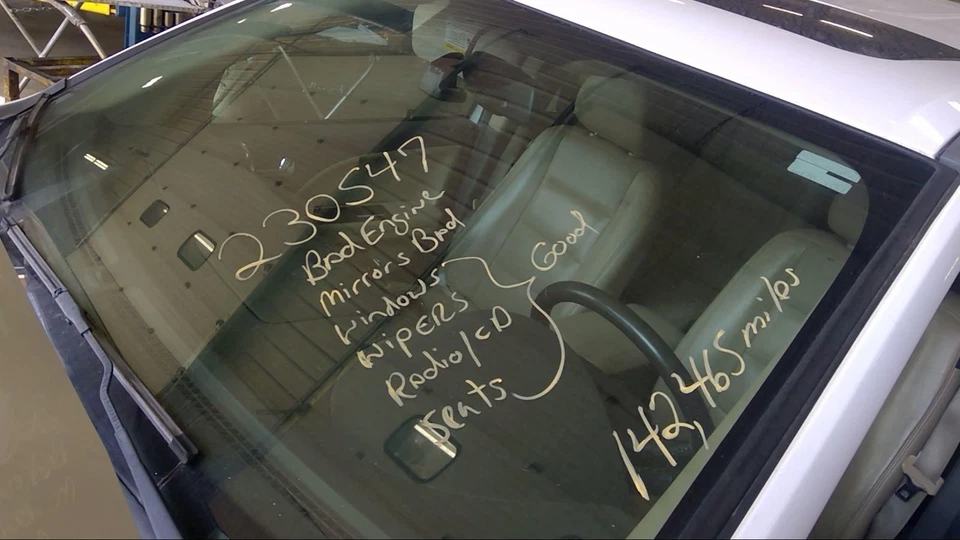 230547
Bad Engine
Mirrors Bad
Windows
WIPERS
Radio/CD
Seats
Good
142,465 miles